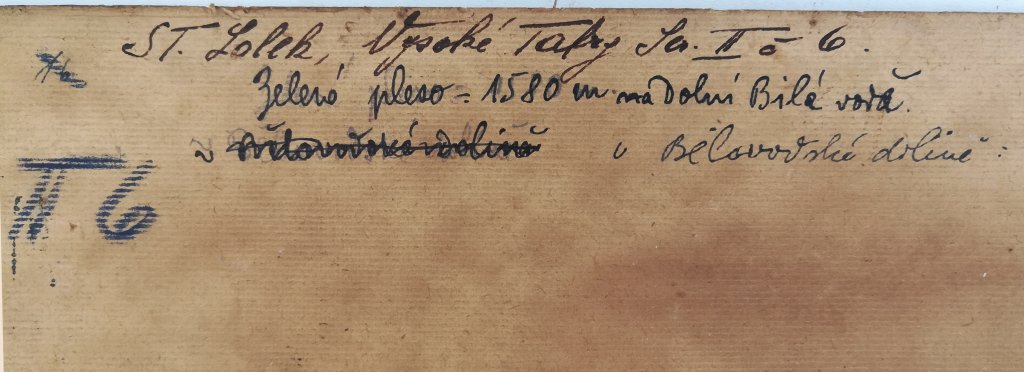 ST. Lolek, Vysoké Tatry Sa. II č 6.
Zelené pleso = 1580 m na Dolní Bílá voda.
v Bělovodské dolině v Bělovodské dolině.
II 6